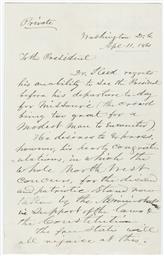 Private
Washington D.C.
Apl. 11, 1861
To the President
Dr. Reed regrets
his inability to see the President
before his departure to day
for Missouri (the crowd
being too great for a
modest man to encounter)
He desires to express,
however, his hearty congrat-
ulations, in which the
whole North West
concurs, for the decided
and patriotic stand now
taken by the Administration
in support of the laws &
the Constitution.
The free States will
all rejoice at this.